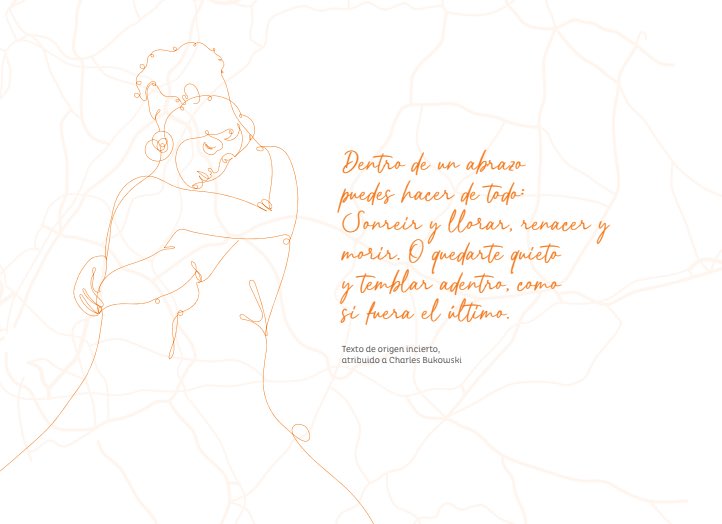 Dentro de un abrazo
puedes hacer de todo:
Sonreír y llorar, renacer y
morir. O quedarte quieto
y temblar adentro, como
si fuera el último.
Texto de origen incierto,
atribuido a Charles Bukowski